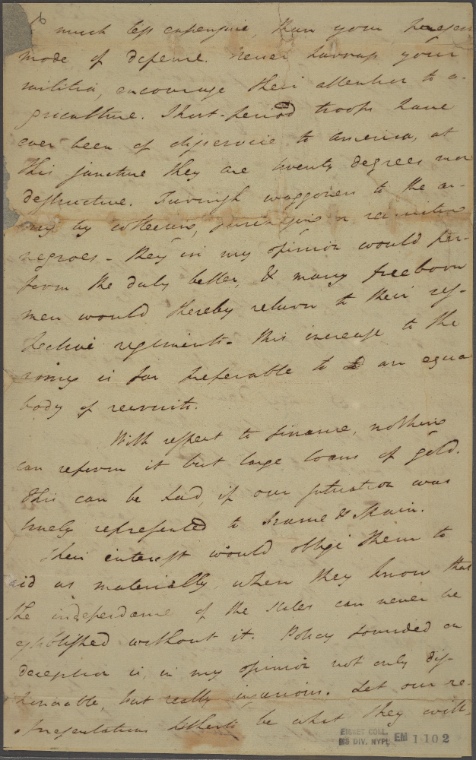 much less expensive, than your present
mode of defence. Never harrass your
militia, encourage their attention to a-
griculture. Short-period troops have
ever been of disservice to america, at
this juncture they are twenty degrees more
destructive. Furnish waggoners to the ar-
my by collecting, or recruiting
negroes - they in my opinion would per-
form the duty better, & many freeborn
men would thereby return to their res-
pective regiments. This increase to the
army is far preferable to an equal
body of recruits.
With respect to finance, nothing
can reform it but large loans of gold.
This can be had, if our situation was
truely represented to France & Spain.
Their interest would oblige them to
aid us materially, when they know that
the independance of the States can never be
established without it. Policy founded on
deception is, in my opinion not only dis-
honorable, but really injurious. Let our re-
presentations be what they will
EMMET COLL.
MS DIV. NYPL
EM 1102